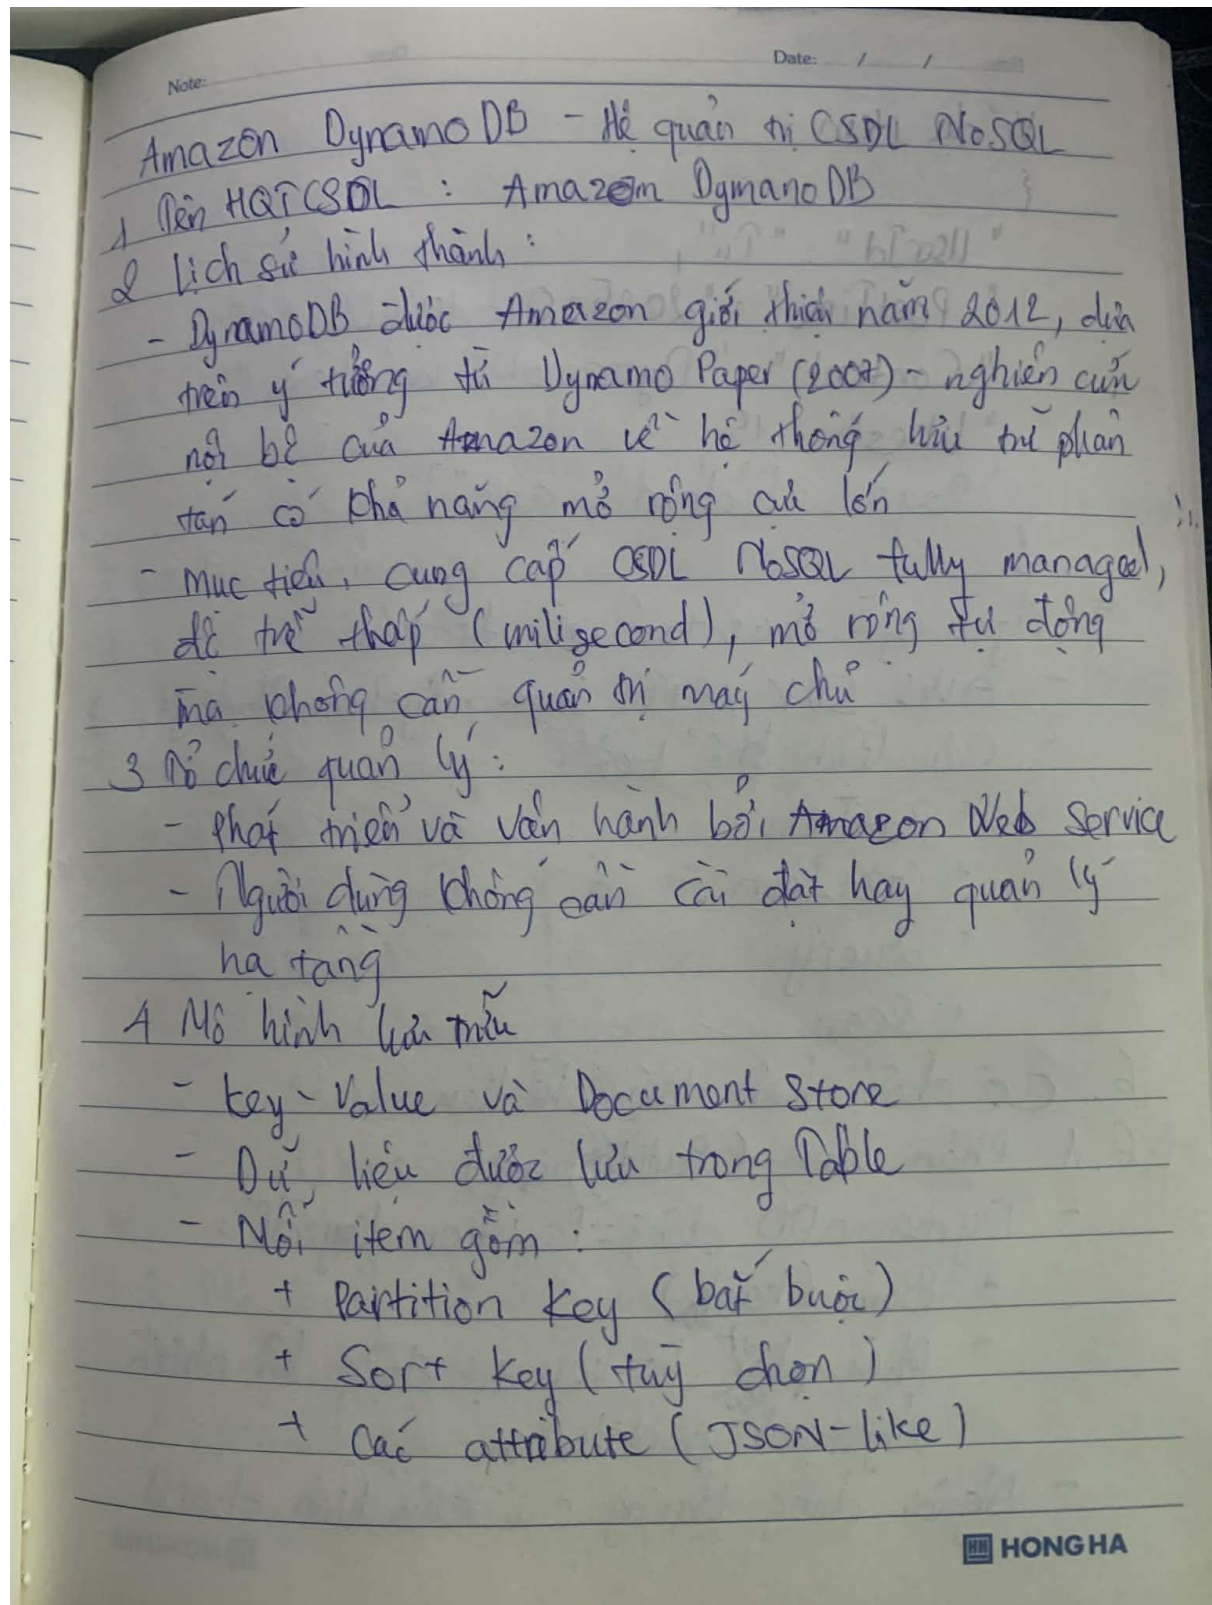 Note:
Date: / /
Amazon DynamoDB - Hệ quản trị CSDL NoSQL
1 Tên HQTCSDL : Amazom DymanoDB
2 Lịch sử hình thành :
- DynamoDB được Amazon giới thiệu năm 2012, dựa
trên ý tưởng từ Dynamo Paper (2007) - nghiên cứu
nội bộ của Amazon về hệ thống lưu trữ phân
tán có khả năng mở rộng cực lớn
- Mục tiêu, cung cấp CSDL NoSQL fully managed,
độ trễ thấp (milisecond), mở rộng tự động
mà không cần quản trị máy chủ
3 Tổ chức quản lý :
- Phát triển và vận hành bởi Amazon Web Service
- Người dùng không cần cài đặt hay quản lý
hạ tầng
4 Mô hình lưu trữ
- key-Value và Document Store
- Dữ liệu được lưu trong Table
- Mỗi item gồm :
+ Partition Key (bắt buộc)
+ Sort Key (tuỳ chọn)
+ Các attribute (JSON-like)
HONG HA